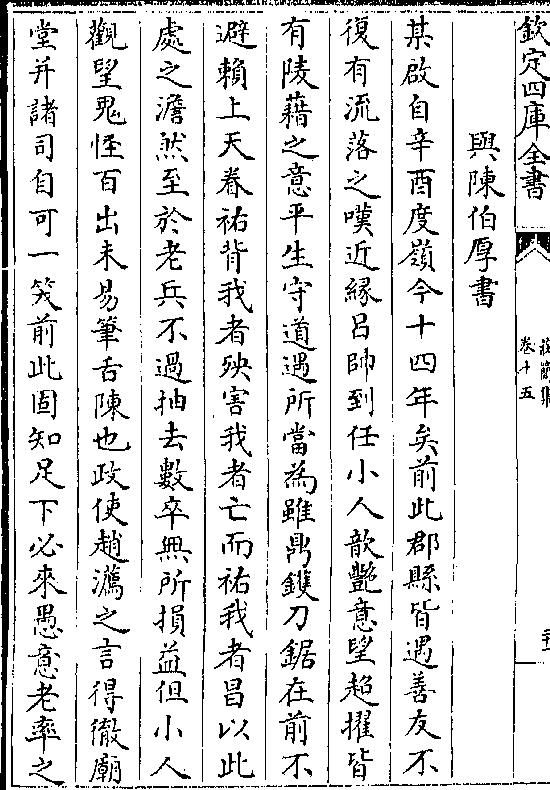 欽定四庫全書
莊簡集
卷十五
與陳伯厚書
某啟自辛酉度嶺今十四年矣前此郡縣皆遇善友不
復有流落之嘆近縁吕帥到任小人歆艷意望超擢皆
有陵藉之意平生守道遇所當為雖鼎鑊刀鋸在前不
避賴上天眷祐背我者殃害我者亡而祐我者昌以此
處之澹然至於老兵不過抽去數卒無所損益但小人
觀望鬼怪百出未易筆舌陳也政使趙㵾之言得徹廟
堂并諸司自可一笑前此固知足下必來愚意老率之